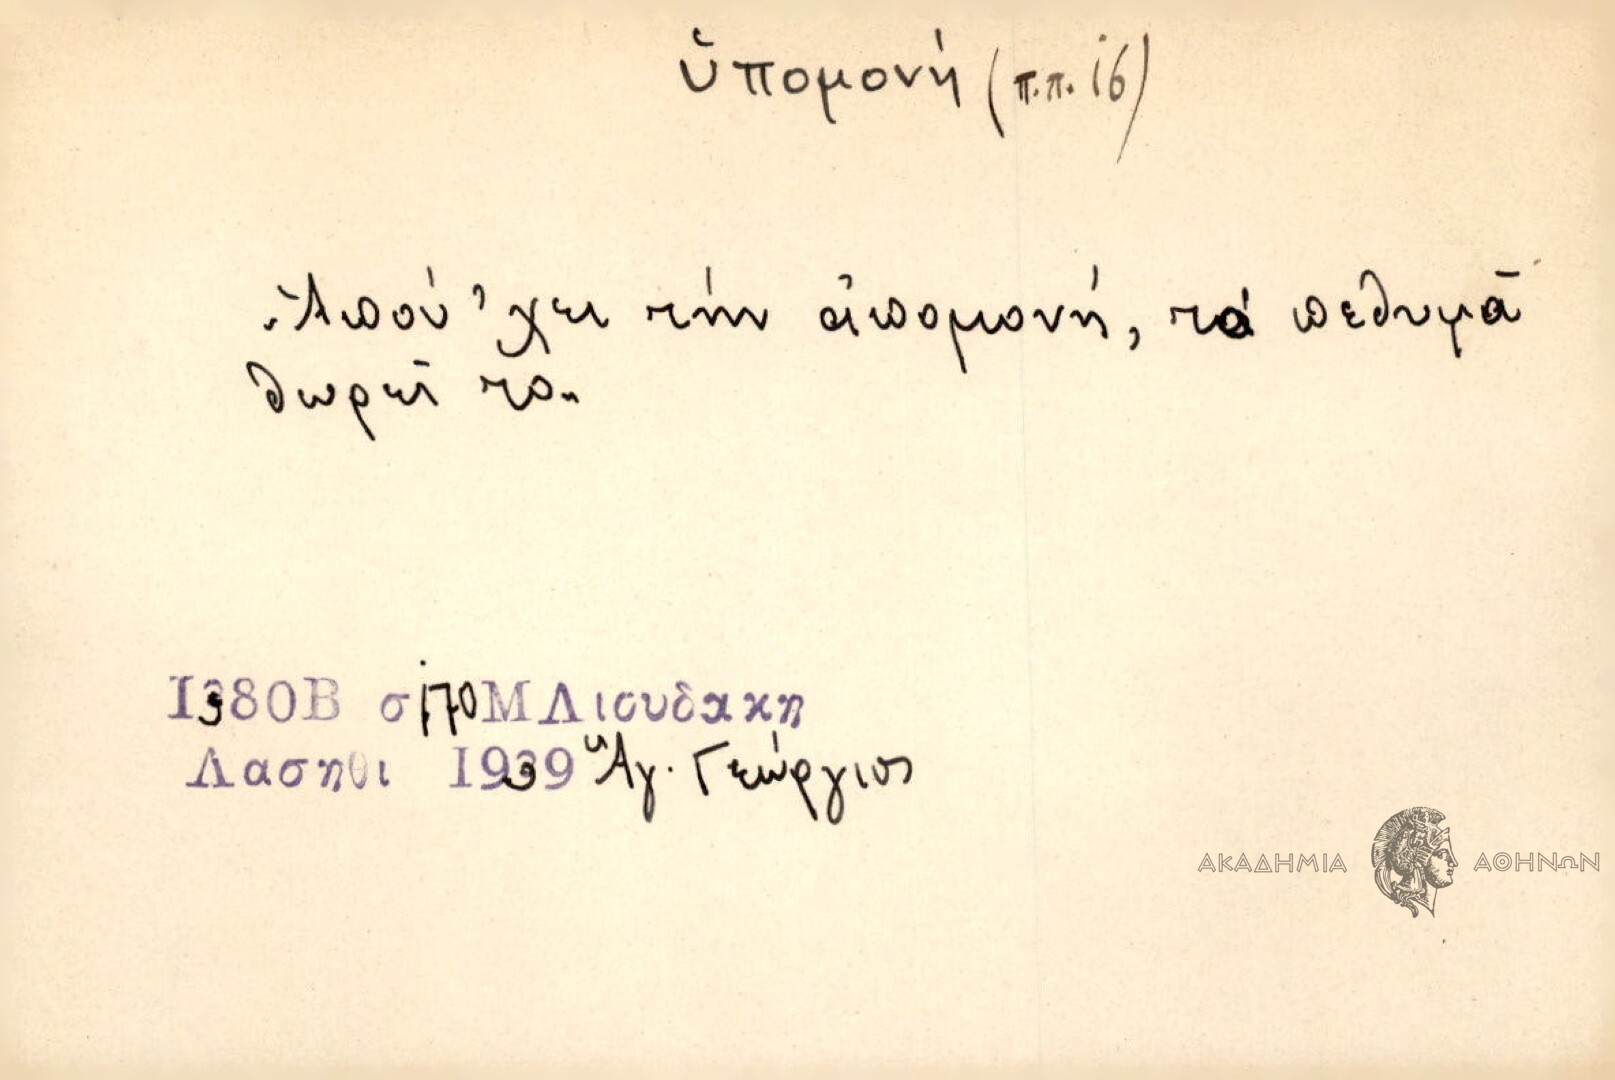 ὑπομονή (π.π. 16)
Ἀπού 'χει τήν ἀπομονή, τά πεθυμᾶ
θωρεῖ το.
1380Β σ 170 Μ Λιουδακη
Λασηθι 1939 Ἅγ. Γεώργιος
ΑΚΑΔΗΜΙΑ ΑΘΗΝΩΝ